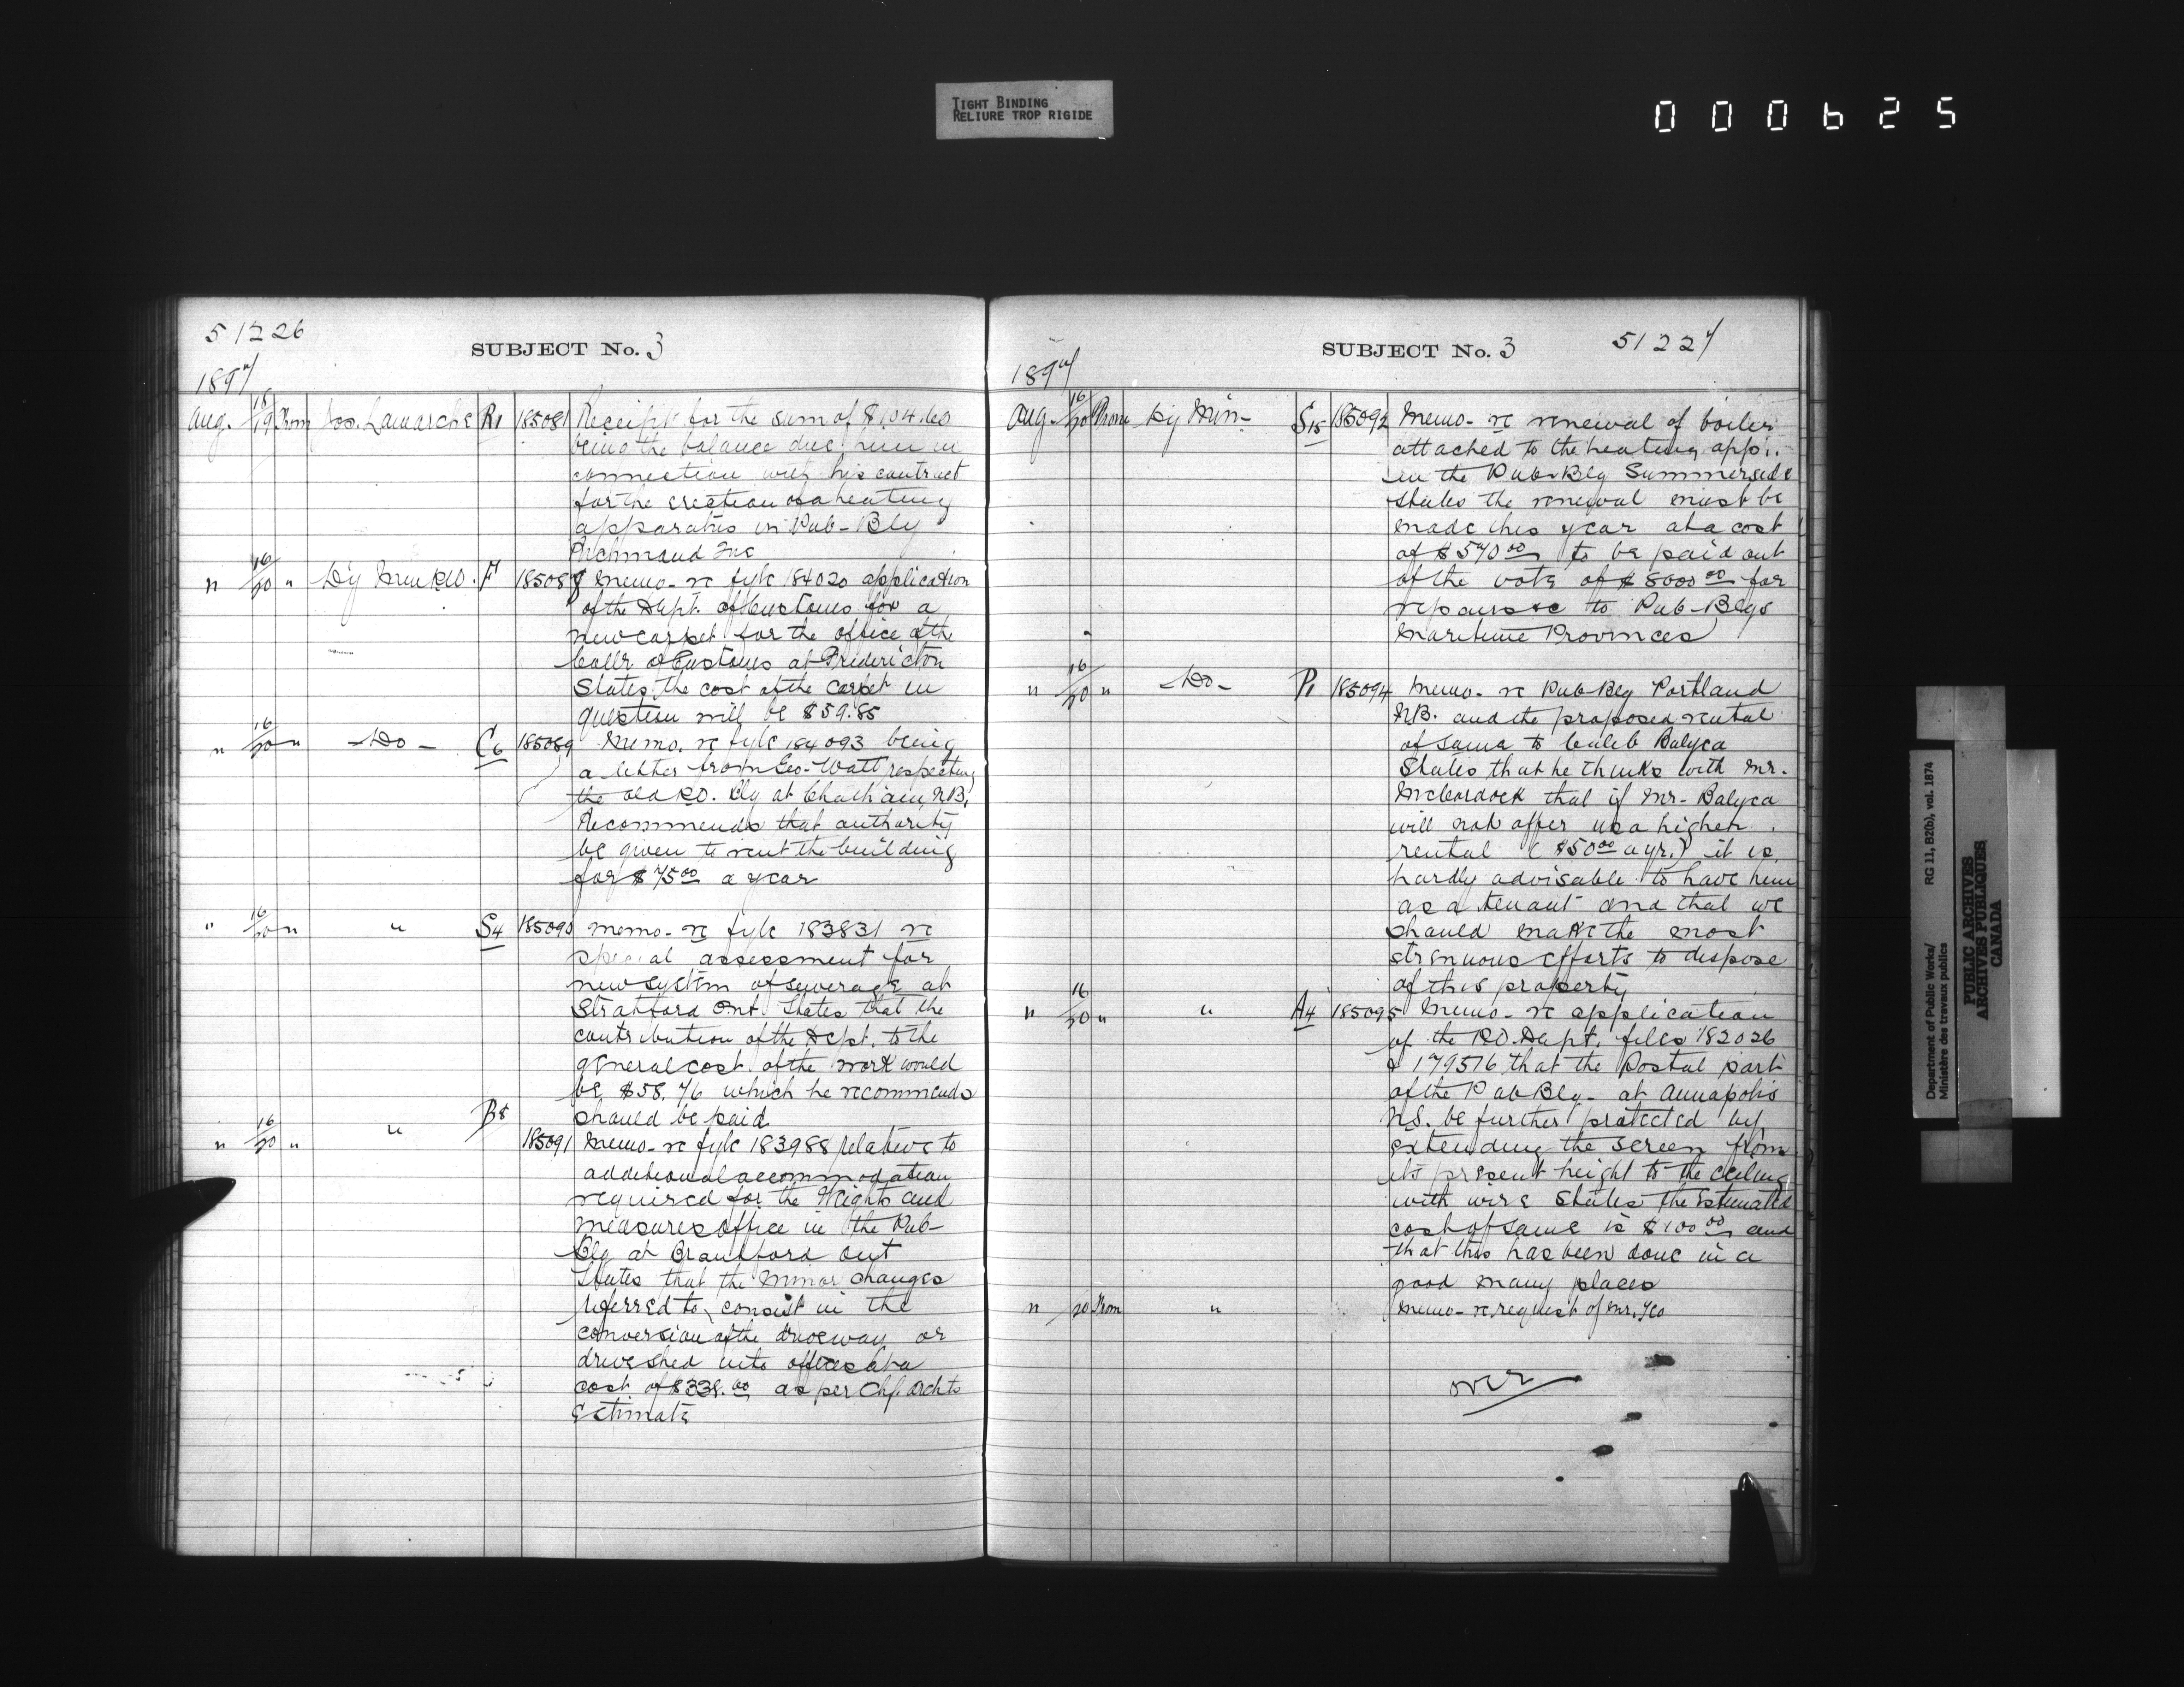 TIGHT BINDING
RELIURE TROP RIGIDE
000625
51226
SUBJECT No. 3
1897
Aug. 18/19 From Jos. Lamarche R1 185081 Receipt for the sum of $104.60
being the balance due him in
connection with his contract
for the erection of a heating
apparatus in Pub-Blg
Richmond
" 16/20 " Dy Min P.W. F 185088 Memo- re fyle 184020 application
of the Dept. of Customs for a
new carpet for the office of the
Collr of Customs at Fredericton
States the cost of the carpet in
question will be $59.85
" 16/20 " -Do- C6 185089 Memo. re fyle 184093 being
a letter from Geo. Watt respecting
the old P.O. Blg at Chatham, N.B.
Recommends that authority
be given to rent the building
for $75.00 a year
" 16/20 " " S4 185090 Memo- re fyle 183831 re
special assessment for
new system of sewerage at
Stratford Ont. States that the
contribution of the Dept. to the
general cost of the work would
be $58.76 which he recommends
should be paid
" 16/20 " " B8 185091 Memo- re fyle 183988 relative to
additional accommodation
required for the Weights and
measures office in the Pub-
Blg at Brantford Ont
States that the minor changes
referred to, consist in the
conversion of the driveway or
drive shed into offices at a
cost of $338.00 as per Chf. Archts
Estimate
SUBJECT No. 3
51227
1897
Aug. 16/20 From Dy Min- S15 185092 Memo- re renewal of boiler
attached to the heating app:.
in the Pub-Blg Summerside
States the renewal must be
made this year at a cost
of $570.00 to be paid out
of the vote of $8000.00 for
repairs &c to Pub-Blgs
Maritime Provinces
" 16/20 " -Do- P1 185094 Memo- re Pub Blg Portland
N.B. and the proposed rental
of same to Caleb Balyca
States that he thinks with Mr.
McCordock that if Mr. Balyca
will not offer us a higher
rental ($50.00 a yr.) it is
hardly advisable to have him
as a tenant and that we
should make the most
strenuous efforts to dispose
of this property
" 16/20 " " A4 185095 Memo- re application
of the P.O. Dept. files 182026
& 179516 that the Postal part
of the Pub Blg- at Annapolis
N.S. be further protected by
extending the screen from
its present height to the ceiling
with wire States the Estimated
cost of same is $100.00 and
that this has been done in a
good many places
" 20 From " Memo- re request of Mr. Yeo
over
Department of Public Works/
Ministère des travaux publics
RG 11, B2(b), vol. 1874
PUBLIC ARCHIVES
ARCHIVES PUBLIQUES
CANADA